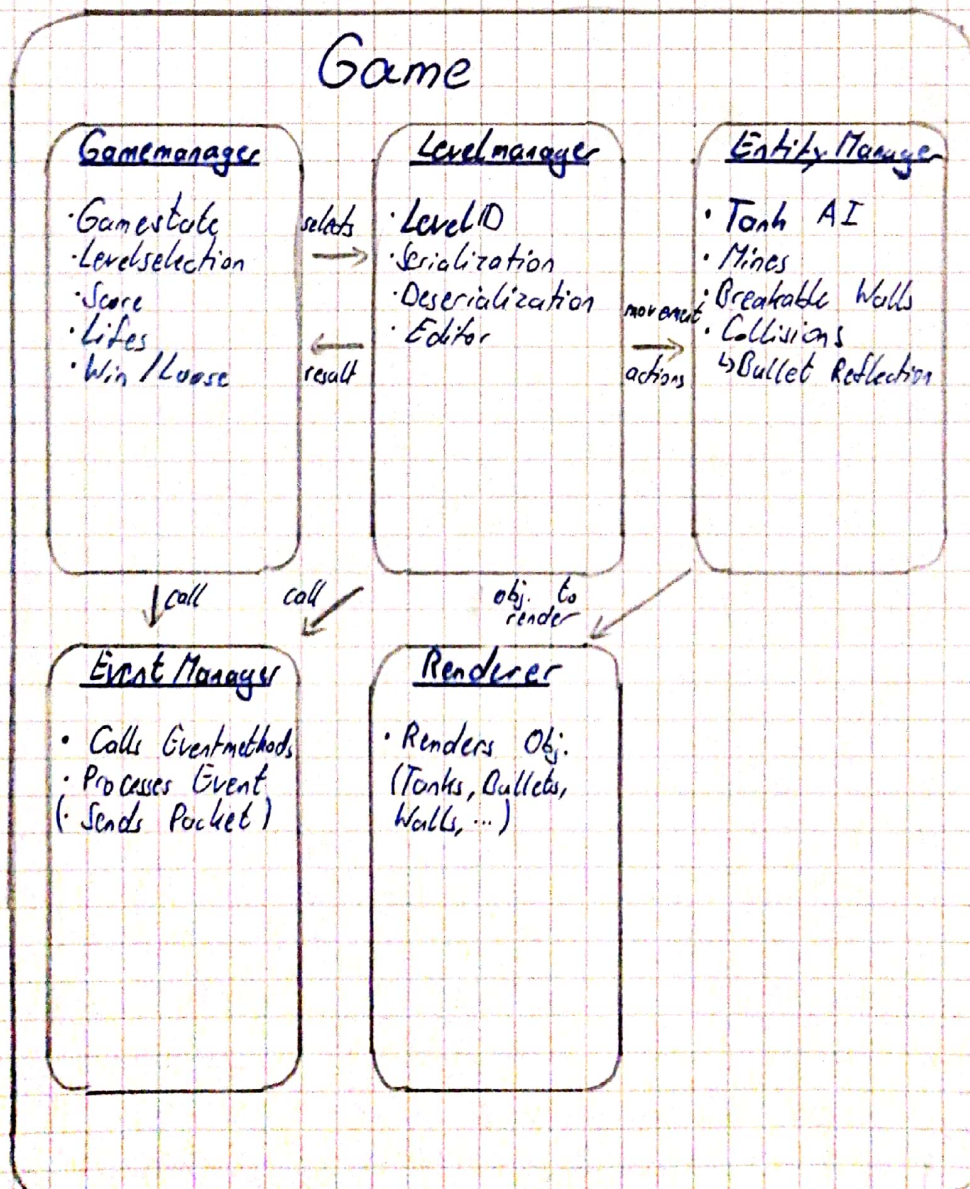 Game
Gamemanager
· Gamestate
· Levelselection
· Score
· Lifes
· Win / Loose
selects
result
Levelmanager
· LevelID
· Serialization
· Deserialization
· Editor
movement
actions
Entity Manager
· Tank AI
· Mines
· Breakable Walls
· Collisions
↳ Bullet Reflection
call
call
obj. to
render
Event Manager
· Calls Eventmethods
· Processes Event
(· Sends Packet)
Renderer
· Renders Obj.
(Tanks, Bullets,
Walls, ...)